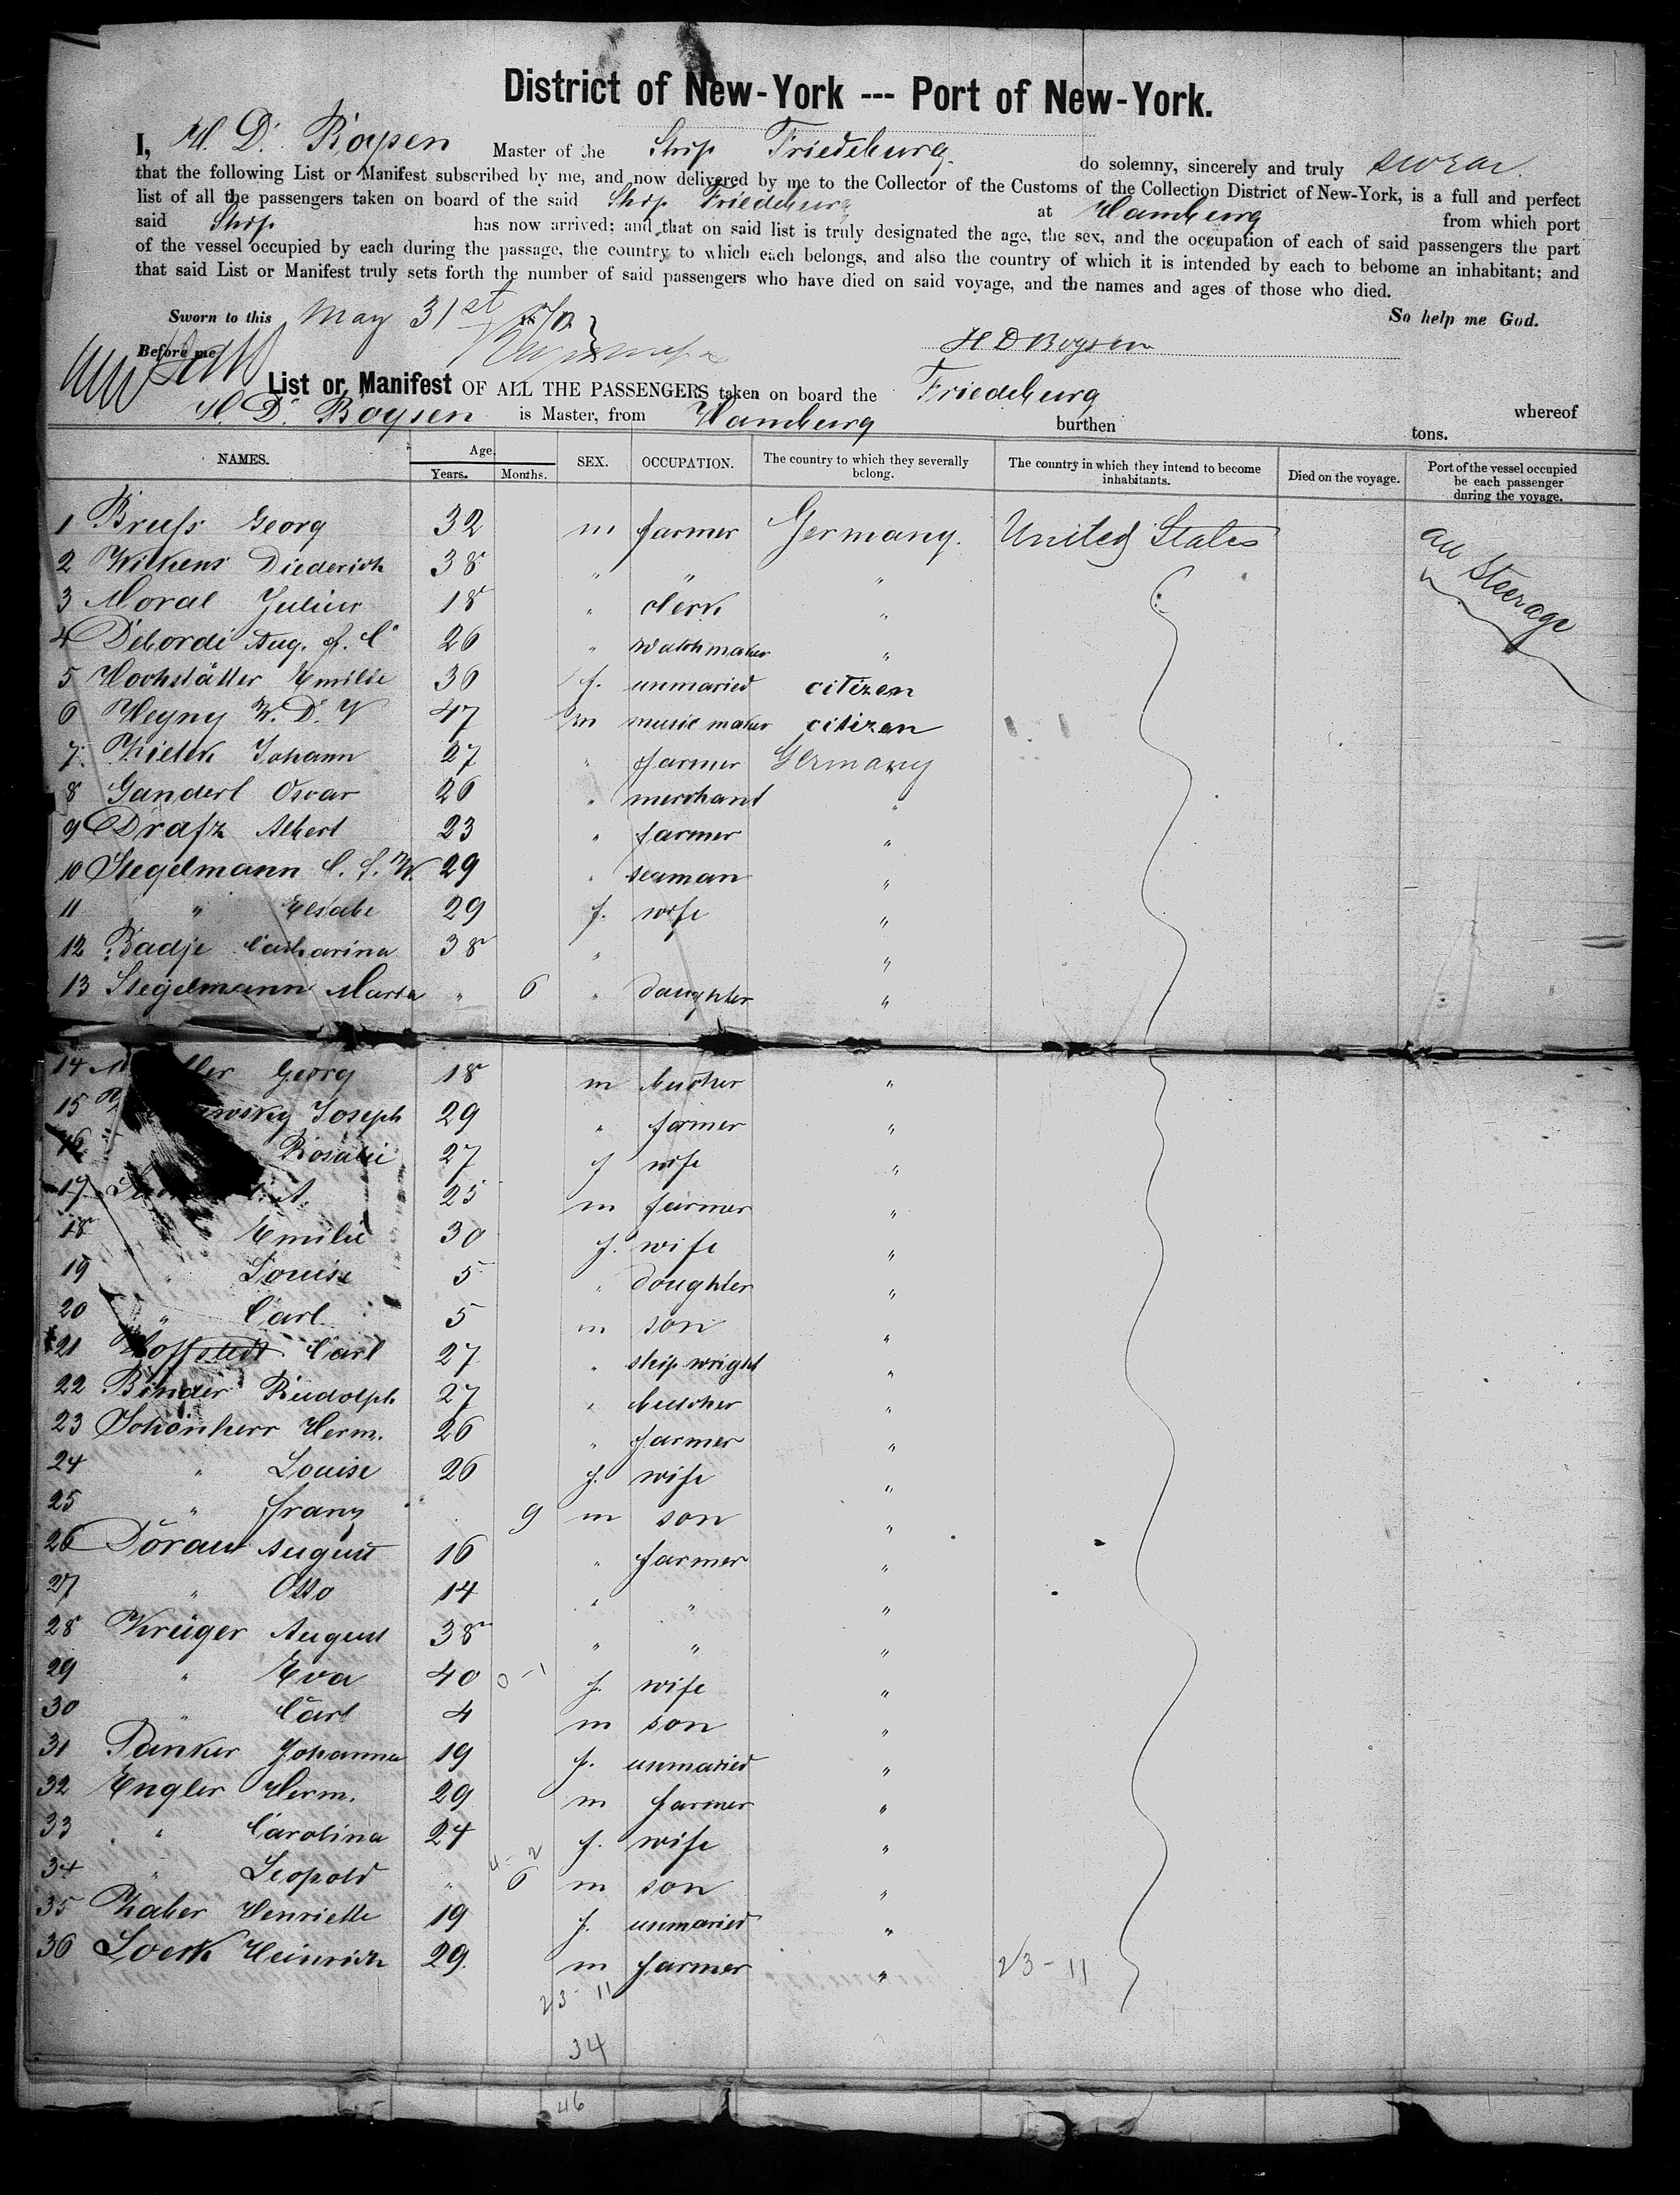 District of New-York --- Port of New-York.
I, H. D. Boysen Master of the Ship Friedeburg do solemny, sincerely and truly swear.
that the following List or Manifest subscribed by me, and now delivered by me to the Collector of the Customs of the Collection District of New-York, is a full and perfect
list of all the passengers taken on board of the said Ship Friedeburg at Hamburg from which port
said Ship has now arrived; and that on said list is truly designated the age, the sex, and the occupation of each of said passengers the part
of the vessel occupied by each during the passage, the country to which each belongs, and also the country of which it is intended by each to bebome an inhabitant; and
that said List or Manifest truly sets forth the number of said passengers who have died on said voyage, and the names and ages of those who died.
Sworn to this May 31st 1870 So help me God.
Before me H D Boysen
List or Manifest OF ALL THE PASSENGERS taken on board the Friedeburg whereof
H. D. Boysen is Master, from Hamburg burthen tons.
NAMES. Age. Years. Months. SEX. OCCUPATION. The country to which they severally belong. The country in which they intend to become inhabitants. Died on the voyage. Port of the vessel occupied be each passenger during the voyage.
1 Bruss Georg 32 m farmer Germany. United States all Steerage
2 Wilkens Diederich 38 " " "
3 Moral Julius 18 " clerk "
4 Debordi Aug. f. C 26 " watchmaker "
5 Hochstätter Emilie 36 f. unmaried citizen
6 Heyny W. D. V 47 m music maker citizen
7 Johann 27 " farmer Germany
8 Ganderl Oscar 26 " merchant "
9 Drafz Albert 23 " farmer "
10 Stegelmann C. f. W. 29 " seaman "
11 " Elsabe 29 f. wife "
12 Badje Catharina 38 " "
13 Stegelmann Maria " 6 " daughter "
14 Georg 18 m bucher "
15 Joseph 29 " farmer "
16 " Rosalie 27 f wife "
17 A. 25 m farmer "
18 Emilie 30 f. wife "
19 " Louise 5 " doughter "
20 " Carl 5 m son "
21 Hoffstedt Carl 27 " ship wright "
22 Binder Rudolph 27 " butcher "
23 Schönherr Herm. 26 " farmer "
24 " Louise 26 f. wife "
25 " Franz 9 m son "
26 Dorau August 16 " farmer "
27 " Otto 14 " " "
28 Krüger August 38 " " "
29 " Eva 40 0-1 f. wife "
30 " Carl 4 m son "
31 Panker Johanna 19 f. unmaried "
32 Engler Herm. 29 m farmer "
33 " Carolina 24 f. wife "
4-2
34 " Leopold " 6 m son "
35 Zaber Henriette 19 f. unmaried "
36 Loerk Heinrich 29. m farmer " 23-11
23-11
34
46